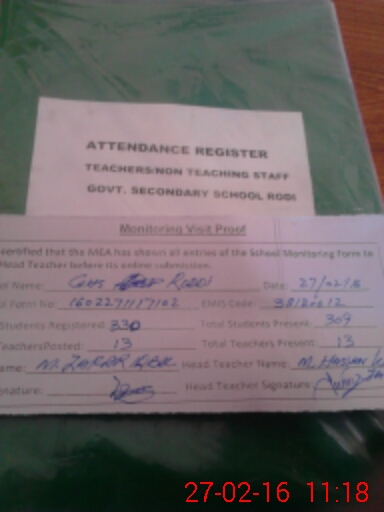 ATTENDANCE REGISTER
TEACHERS/NON TEACHING STAFF
GOVT. SECONDARY SCHOOL RODI
Monitoring Visit Proof
certified that the MEA has shown all entries of the School Monitoring Form to
Head Teacher before its online submission.
ol Name: GHS Roddi Date: 27/02/16
ol Form No: 1602271117102 EMIS Code:
Students Registered: 330 Total Students Present: 309
TeachersPosted: 13 Total Teachers Present: 13
ame: M. Head Teacher Name: M. Hassan
gnature: Head Teacher Signature
27-02-16 11:18